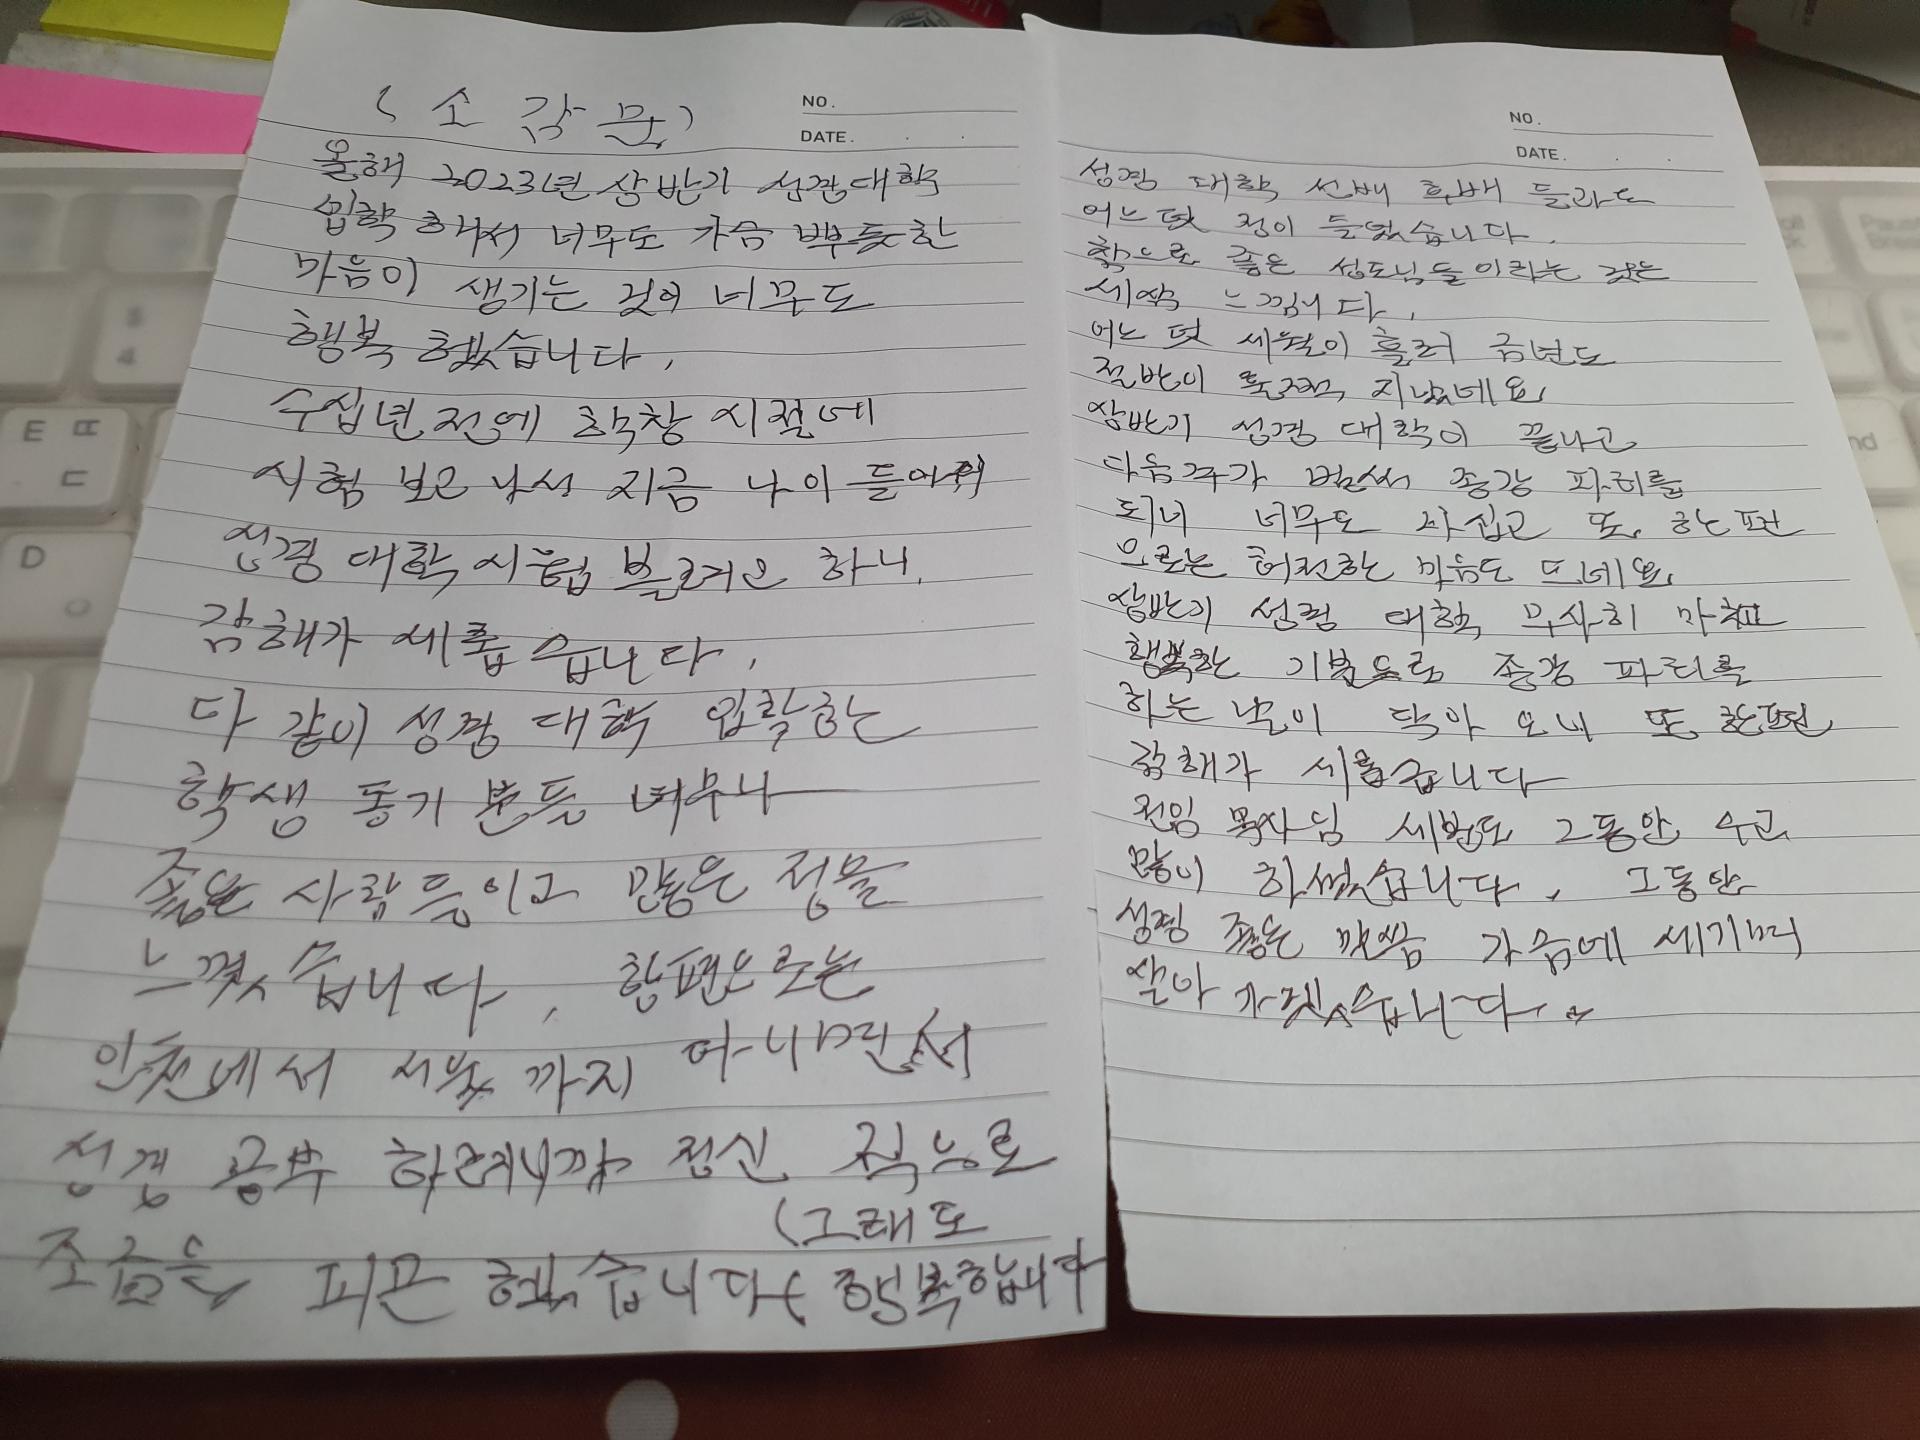 (소 감 문)
NO.
DATE.
올해 2023년 상반기 성경대학
입학 해서 너무도 가슴 뿌듯한
마음이 생기는 것이 너무도
행복 했습니다.
수십년 전에 학창 시절에
시험 보고 나서 지금 나이 들어
성경 대학 시험 볼려고 하니
감해가 세롭습니다.
다 같이 성경 대학 입학한
학생 동기 분들 너무나
좋은 사람들이고 많은 정을
느꼈습니다, 한편으로는
인천에서 서울 까지 다니면서
성경 공부 하려니까 정신 적으로
조금은 피곤 했습니다 (그래도
행복합니다
NO.
DATE.
성경 대학 선배 후배 들과도
어느덧 정이 들었습니다.
참으로 좋은 성도님들이라는 것은
세삭 느낌니다.
어느 덧 세월이 흘러 금년도
절반이 훌쩍 지났네요,
상반기 성경 대학이 끝나고
다음주가 벌써 종강 파티를
되니 너무도 아쉽고 또, 한편
으로는 허전한 마음도 드네요,
상반기 성경 대학 무사히 마치고
행복한 기분으로 종강 파티를
하는 날이 닥아 오니 또 한편
감해가 세롭습니다
전임 목사님 세분도 그동안 수고
많이 하셨습니다, 그동안
성경 좋은 말씀 가슴에 세기며
살아 가겠습니다..